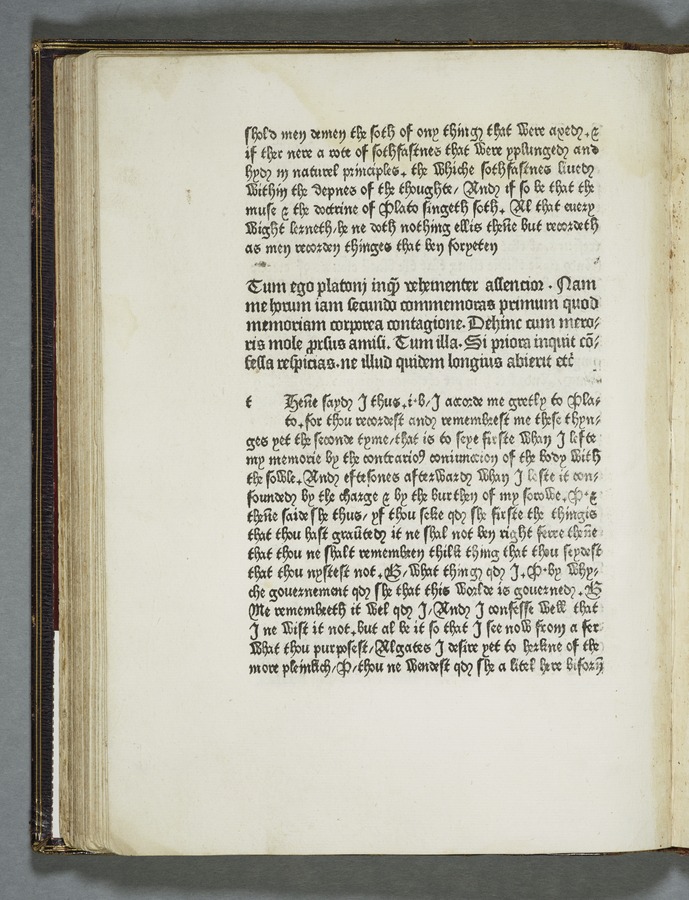 shold men demen the soth of ony thingꝭ that were axedꝫ. &
if ther nere a rote of sothfastnes that were yplungedꝫ and
hydꝫ in naturel principles. the whiche sothfastnes liuedꝫ
within the depnes of the thoughte/ Andꝫ if so be that the
muse & the doctrine of Plato singeth soth. Al that euery
wight lerneth/he ne doth nothing ellis thēne but recordeth
as men recorden thinges that ben foryeten
Tum ego platonj inqͥ vehementer assencior. Nam
me horum iam secundo commemoras primum quod
memoriam corporea contagione. Dehinc cum mero⸗
ris mole ꝓsus amisi. Tum illa. Si priora inquit cō⸗
cessa respicias. ne illud quidem longius abierit etc̄
t Hēne saydꝫ I thus. i·b/I accorde me gretly to Pla⸗
to. for thou recordest andꝫ remembrest me these thyn⸗
ges yet the seconde tyme/that is to seye firste whan I lefte
my memorie by the contrarioꝰ coniunccion of the body with
the sowle. Andꝫ eftesones afterwardꝫ whan I loste it con⸗
foundedꝫ by the charge & by the burthen of my sorowe. P·&
thēne saide she thus/ yf thou seke qdꝫ she firste the thingis
that thou hast graūtedꝫ it ne shal not ben right ferre thēne
that thou ne shalt remembren thilk thing that thou seydest
that thou nystest not. B/ what thingꝭ qdꝫ I. P·by why⸗
che gouernement qdꝫ she that this worlde is gouernedꝫ. B
Me remembreth it wel qdꝫ I/ Andꝫ I confesse well that
I ne wist it not. but al be it so that I see now from a fer
what thou purposest/ Algates I desire yet to herkne of the
more pleinlich/P/thou ne wendest qdꝫ she a litel here biforn̄